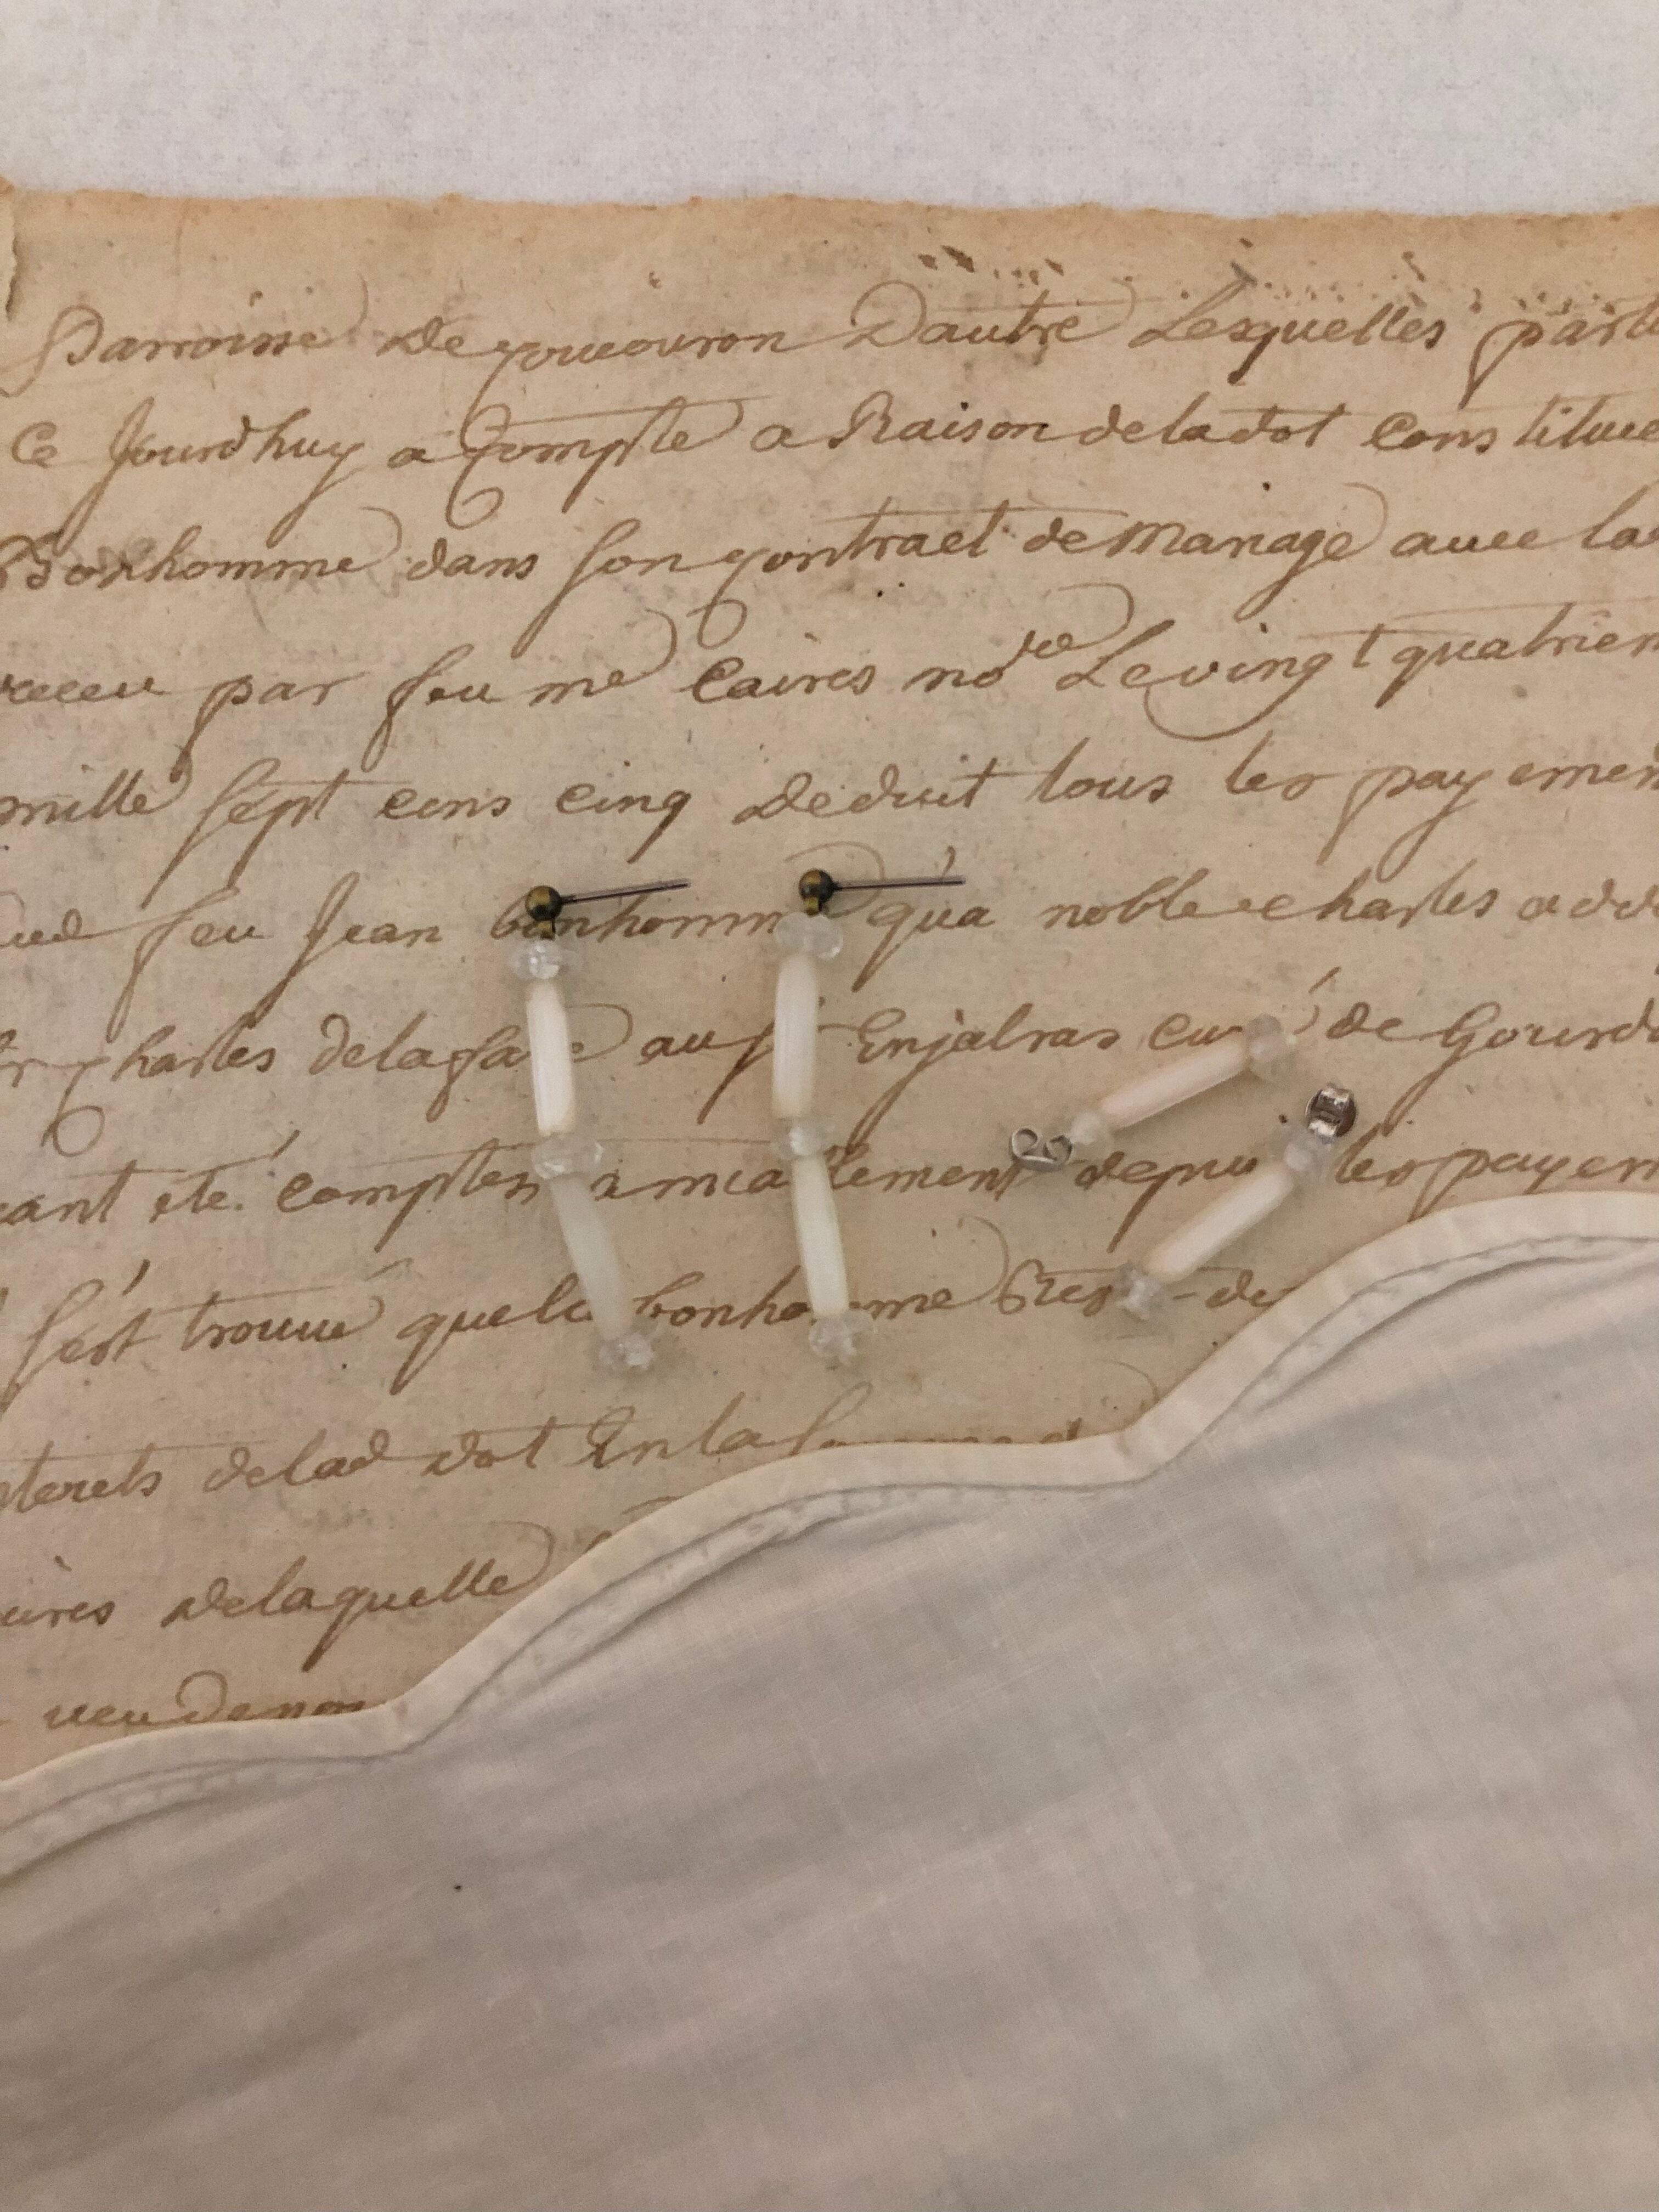 Parroisse de Coucouron Dautre Lesquelles part
Ce Jourdhuy a Compte a Raison deladot constituee
Bonhomme dans son contract de Mariage avec la
receu par feu me Caires nore Levingt quatriem
mille sept cens cinq deduit tous les payemen
feu Jean bonhomme qua noble charles
charles delafare aus Enjalras curé de Gourd
ant eté comptes amiablement depuis les payem
sést trouué quele bonhomme Res de
terets delad dot Enla
ires delaquelle
veu